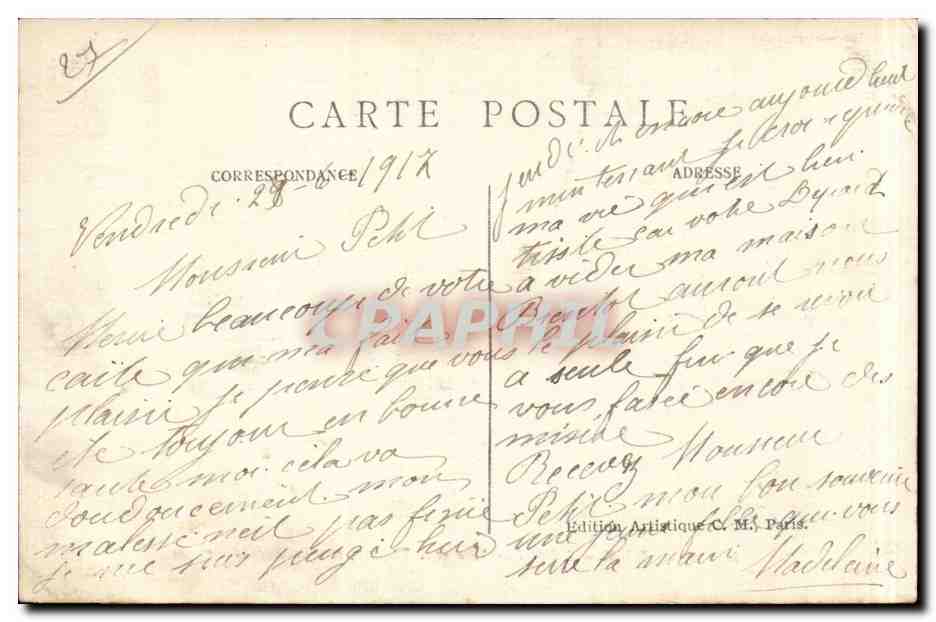 27
CARTE POSTALE
CORRESPONDANCE
ADRESSE
Vendredi 1917
Monsieur Petit
Merci beaucoup de votre
carte qui ma fait
plaisir je pense que vous
ete toujour en bonne
sante moi cela va
doudoucement mon
malesse neit pas finie
je me suis purgé hier
jendi et encore aujourdhui
maintenant je crois
ma vie qui est bien
triste car votre
a vider ma maison
Bientot auront nous
le plaisir de se revoir
a seule fin que je
vous fasse encore des
misere
Recevez Monsieur
Petit mon bon souvenir
une jeune fille qui vous
serre la main Madeleine
Edition Artistique C. M., Paris.
CPAPHIL